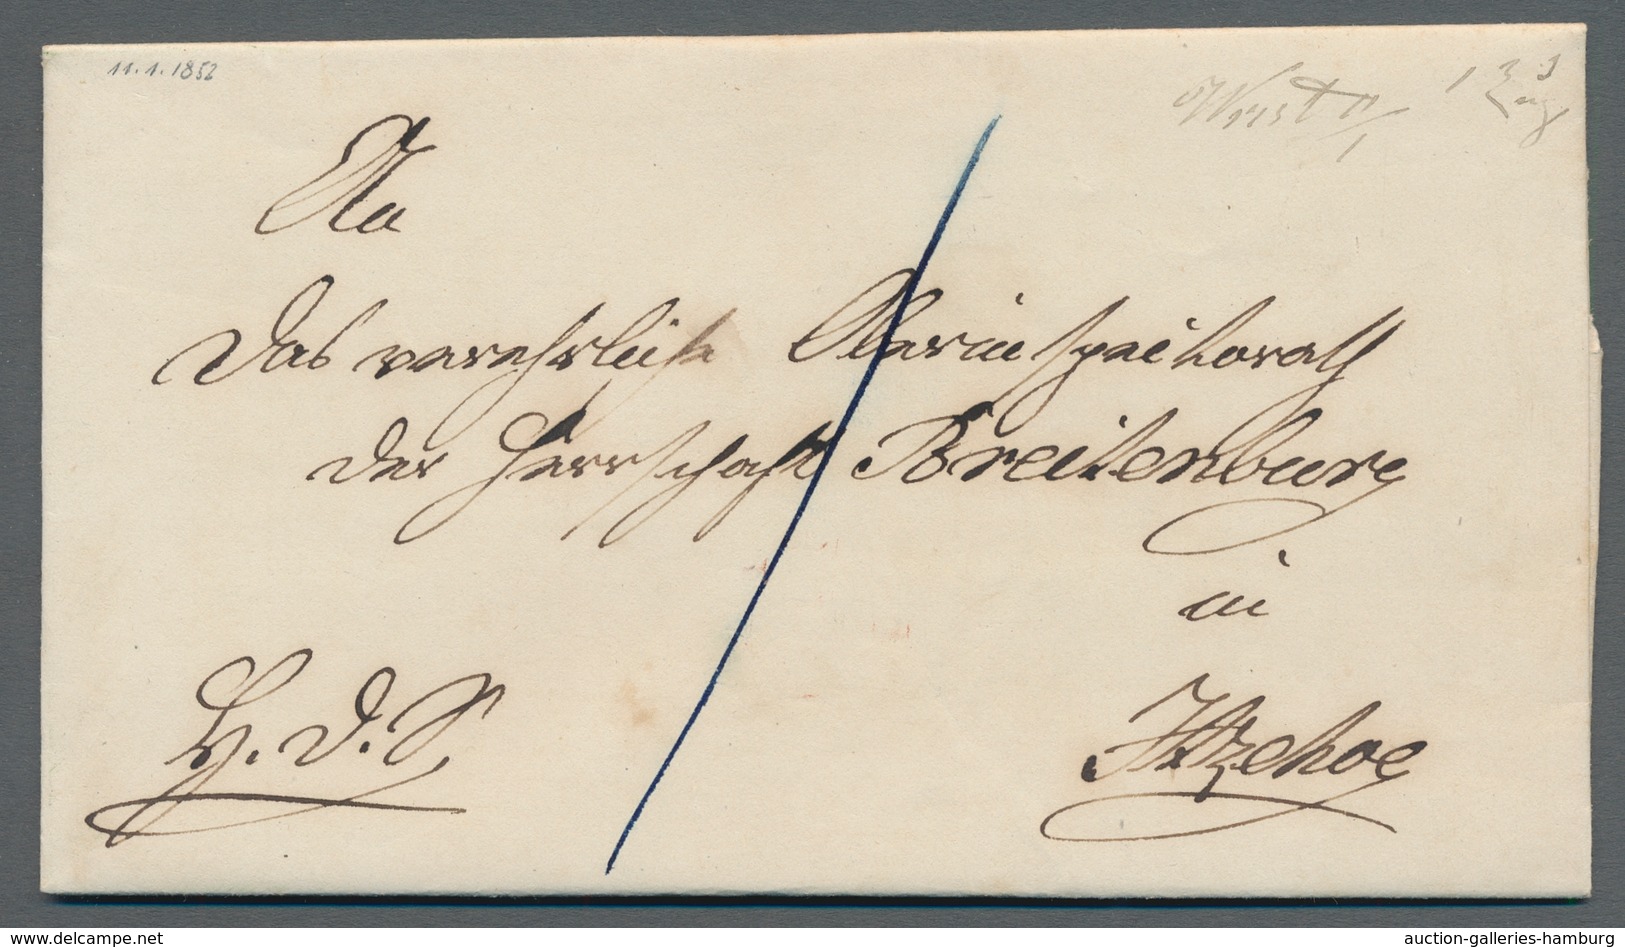 11.1.1852
Wrist 11/1 1 Z 3
An
Das verehrliche Oberinspectorath
der Herrschaft Breitenburg
in
H. d. S.
Itzehoe
www.delcampe.net
auction-galleries-hamburg